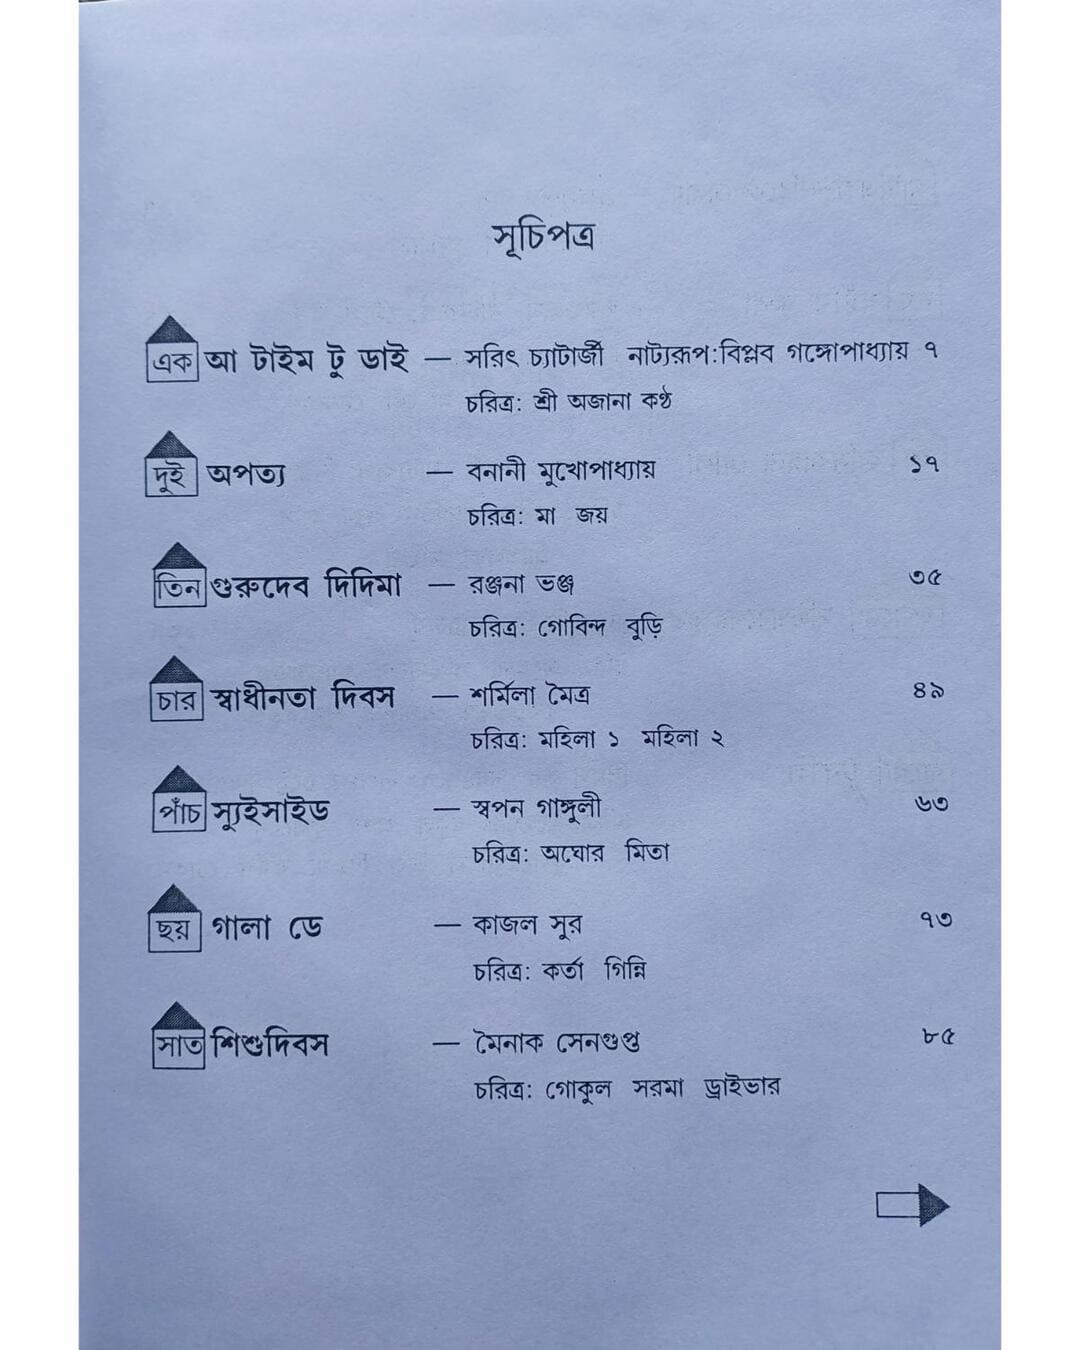 সূচিপত্র
এক আ টাইম টু ডাই — সরিৎ চ্যাটার্জী নাট্যরূপ:বিপ্লব গঙ্গোপাধ্যায় ৭
চরিত্র: শ্রী অজানা কণ্ঠ
দুই অপত্য — বনানী মুখোপাধ্যায় ১৭
চরিত্র: মা জয়
তিন গুরুদেব দিদিমা — রঞ্জনা ভঞ্জ ৩৫
চরিত্র: গোবিন্দ বুড়ি
চার স্বাধীনতা দিবস — শর্মিলা মৈত্র ৪৯
চরিত্র: মহিলা ১ মহিলা ২
পাঁচ স্যুইসাইড — স্বপন গাঙ্গুলী ৬৩
চরিত্র: অঘোর মিতা
ছয় গালা ডে — কাজল সুর ৭৩
চরিত্র: কর্তা গিন্নি
সাত শিশুদিবস — মৈনাক সেনগুপ্ত ৮৫
চরিত্র: গোকুল সরমা ড্রাইভার